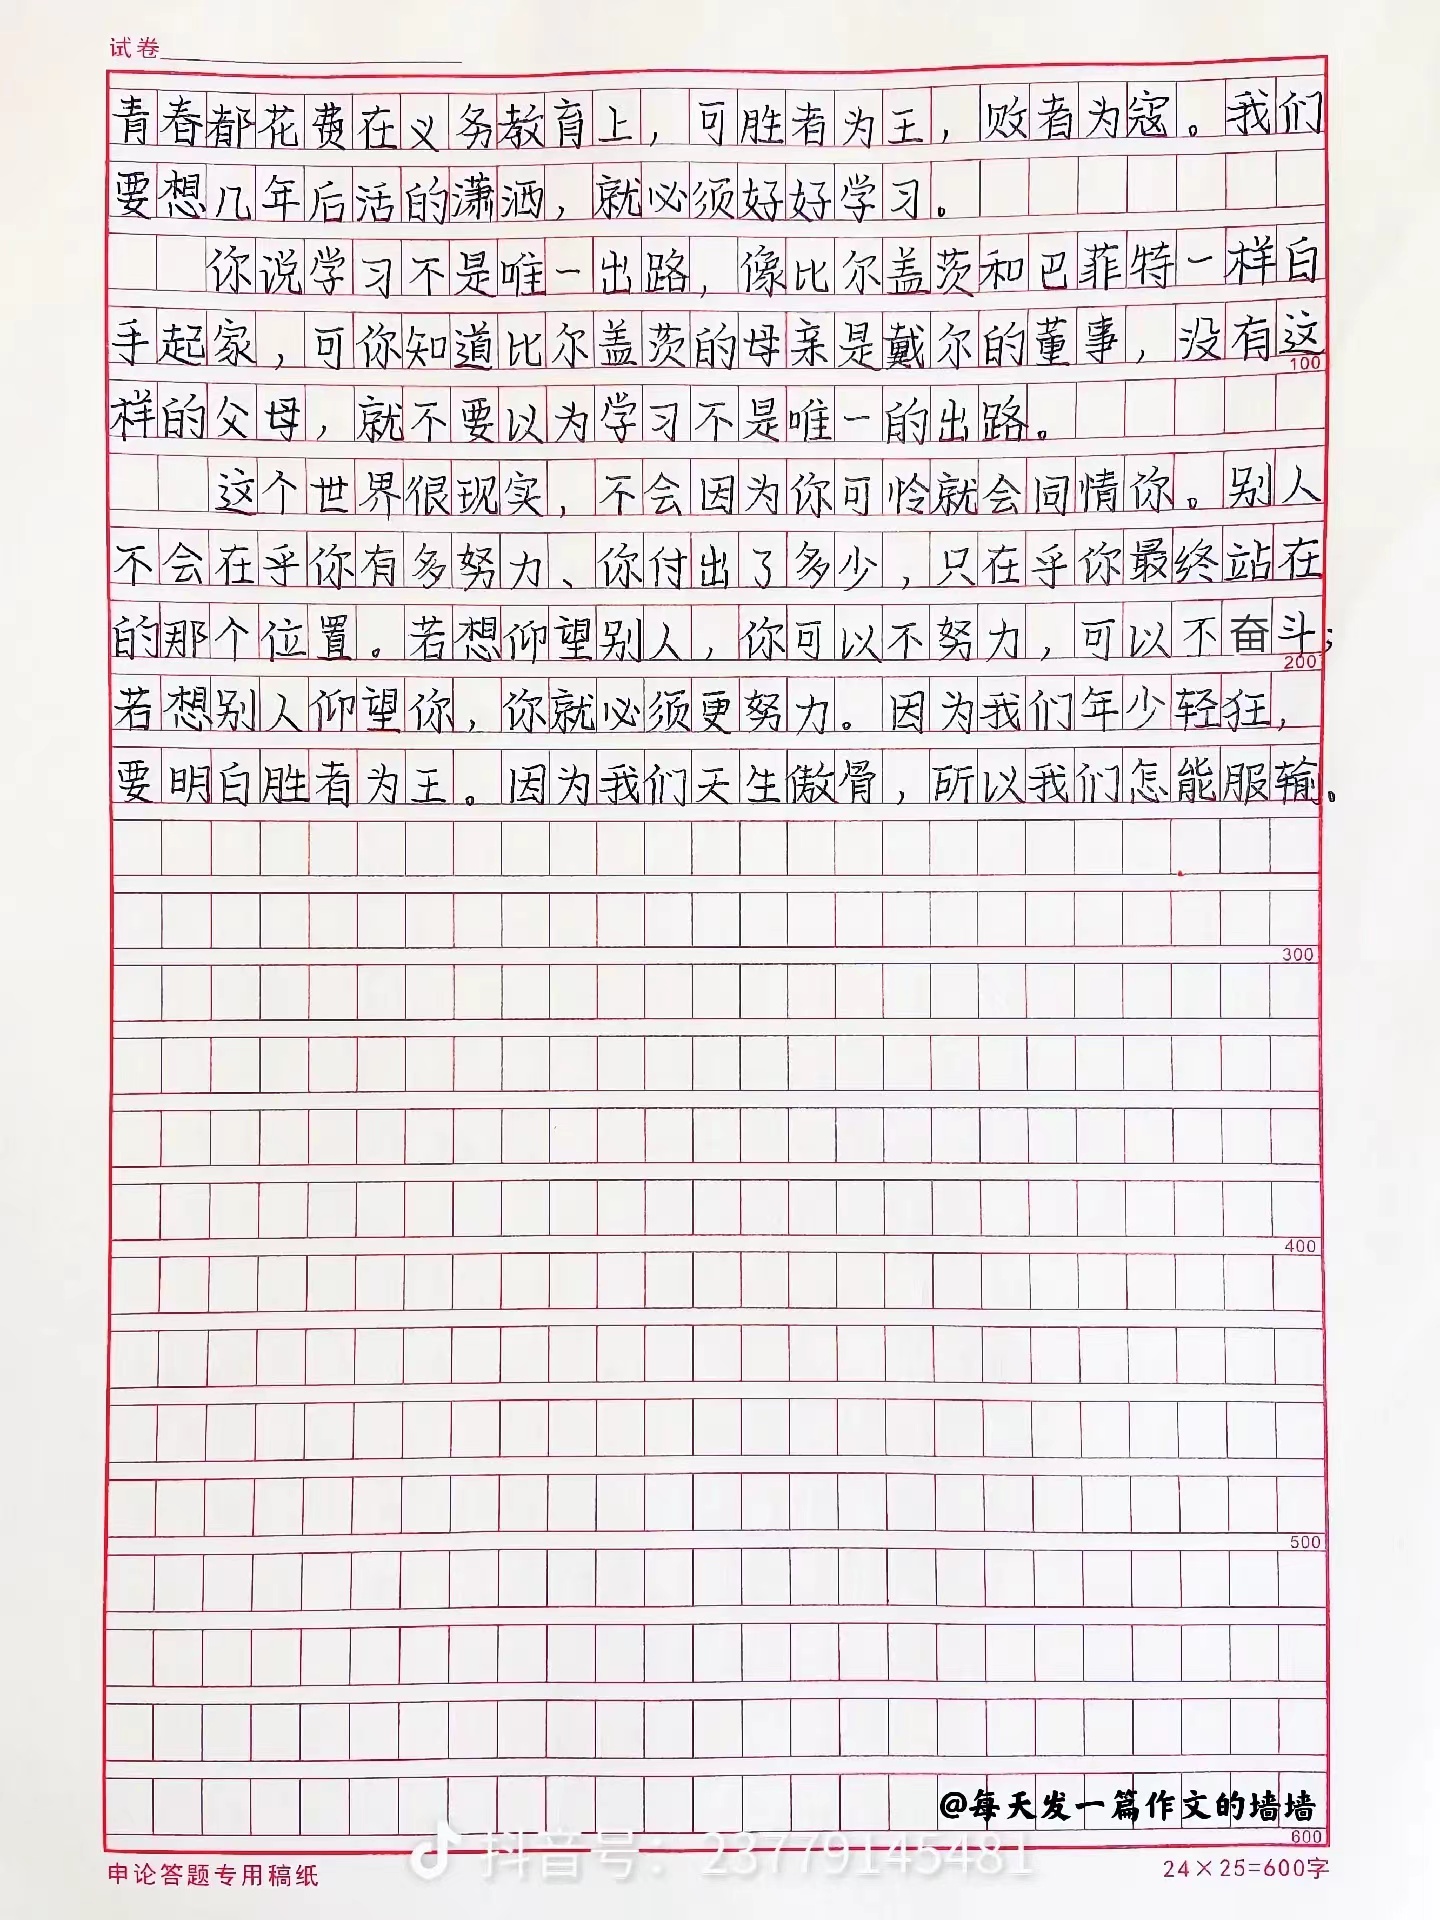 试卷
青春都花费在义务教育上，可胜者为王，败者为寇。我们
要想几年后活的潇洒，就必须好好学习。
你说学习不是唯一出路，像比尔盖茨和巴菲特一样白
手起家，可你知道比尔盖茨的母亲是戴尔的董事，没有这
100
样的父母，就不要以为学习不是唯一的出路。
这个世界很现实，不会因为你可怜就会同情你。别人
不会在乎你有多努力、你付出了多少，只在乎你最终站在
的那个位置。若想仰望别人，你可以不努力，可以不奋斗；
200
若想别人仰望你，你就必须更努力。因为我们年少轻狂，
要明白胜者为王。因为我们天生傲骨，所以我们怎能服输。
300
400
500
@每天发一篇作文的墙墙
600
抖音号：23779145481
申论答题专用稿纸
24×25=600字